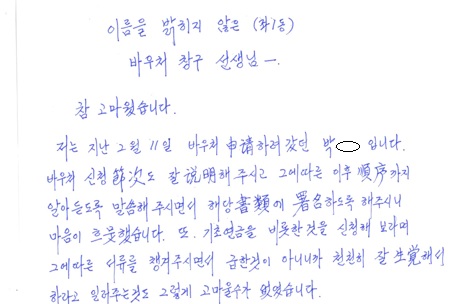 이름을 밝히지 않은 (좌1동)
바우처 창구 선생님ㅡ.
참 고마웠습니다.
저는 지난 2월 11일 바우처 申請하러 갔던 박 입니다.
바우처 신청 節次도 잘 說明해 주시고 그에따른 이후 順序까지
알아듣도록 말씀해 주시면서 해당 書類에 署名하도록 해주시니
마음이 흐뭇했습니다. 또. 기초연금을 비롯한것을 신청해 보라며
그에따른 서류를 챙겨주시면서 급한것이 아니니까 천천히 잘 生覚해서
하라고 일러주는것도 그렇게 고마울수가 없었습니다.